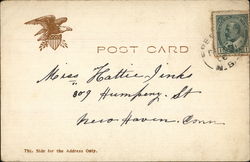 POST CARD
Miss Hattie Jinks
809 Humpeng. St
New Haven. Conn
This Side for the Address Only.